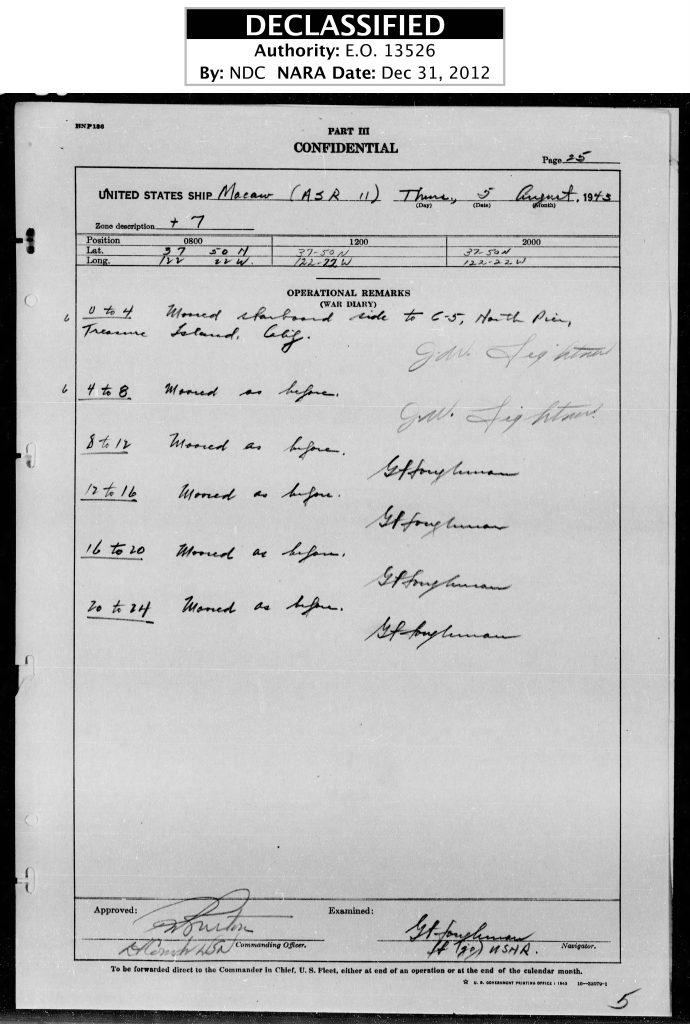 DECLASSIFIED
Authority: E.O. 13526
By: NDC NARA Date: Dec 31, 2012
BNP186
PART III
CONFIDENTIAL
Page 25
UNITED STATES SHIP Macaw (ASR 11) Thurs., 5 August, 1943
(Day) (Date) (Month)
Zone description + 7
Position 0800 1200 2000
Lat. 37 50 N 37-50N 37-50N
Long. 122 22W. 122-22W 122-22W
OPERATIONAL REMARKS
(WAR DIARY)
6 0 to 4 Moored starboard side to C-5, North Pier,
Treasure Island, Calif.
G.W. Lightner
6 4 to 8 Moored as before.
G.W. Lightner
8 to 12 Moored as before.
12 to 16 Moored as before.
16 to 20 Moored as before.
20 to 24 Moored as before.
Approved: Examined:
Burton
Commanding Officer.
Lt (jg) USNR. Navigator.
To be forwarded direct to the Commander in Chief, U. S. Fleet, either at end of an operation or at the end of the calendar month.
☆ U. S. GOVERNMENT PRINTING OFFICE : 1943
5